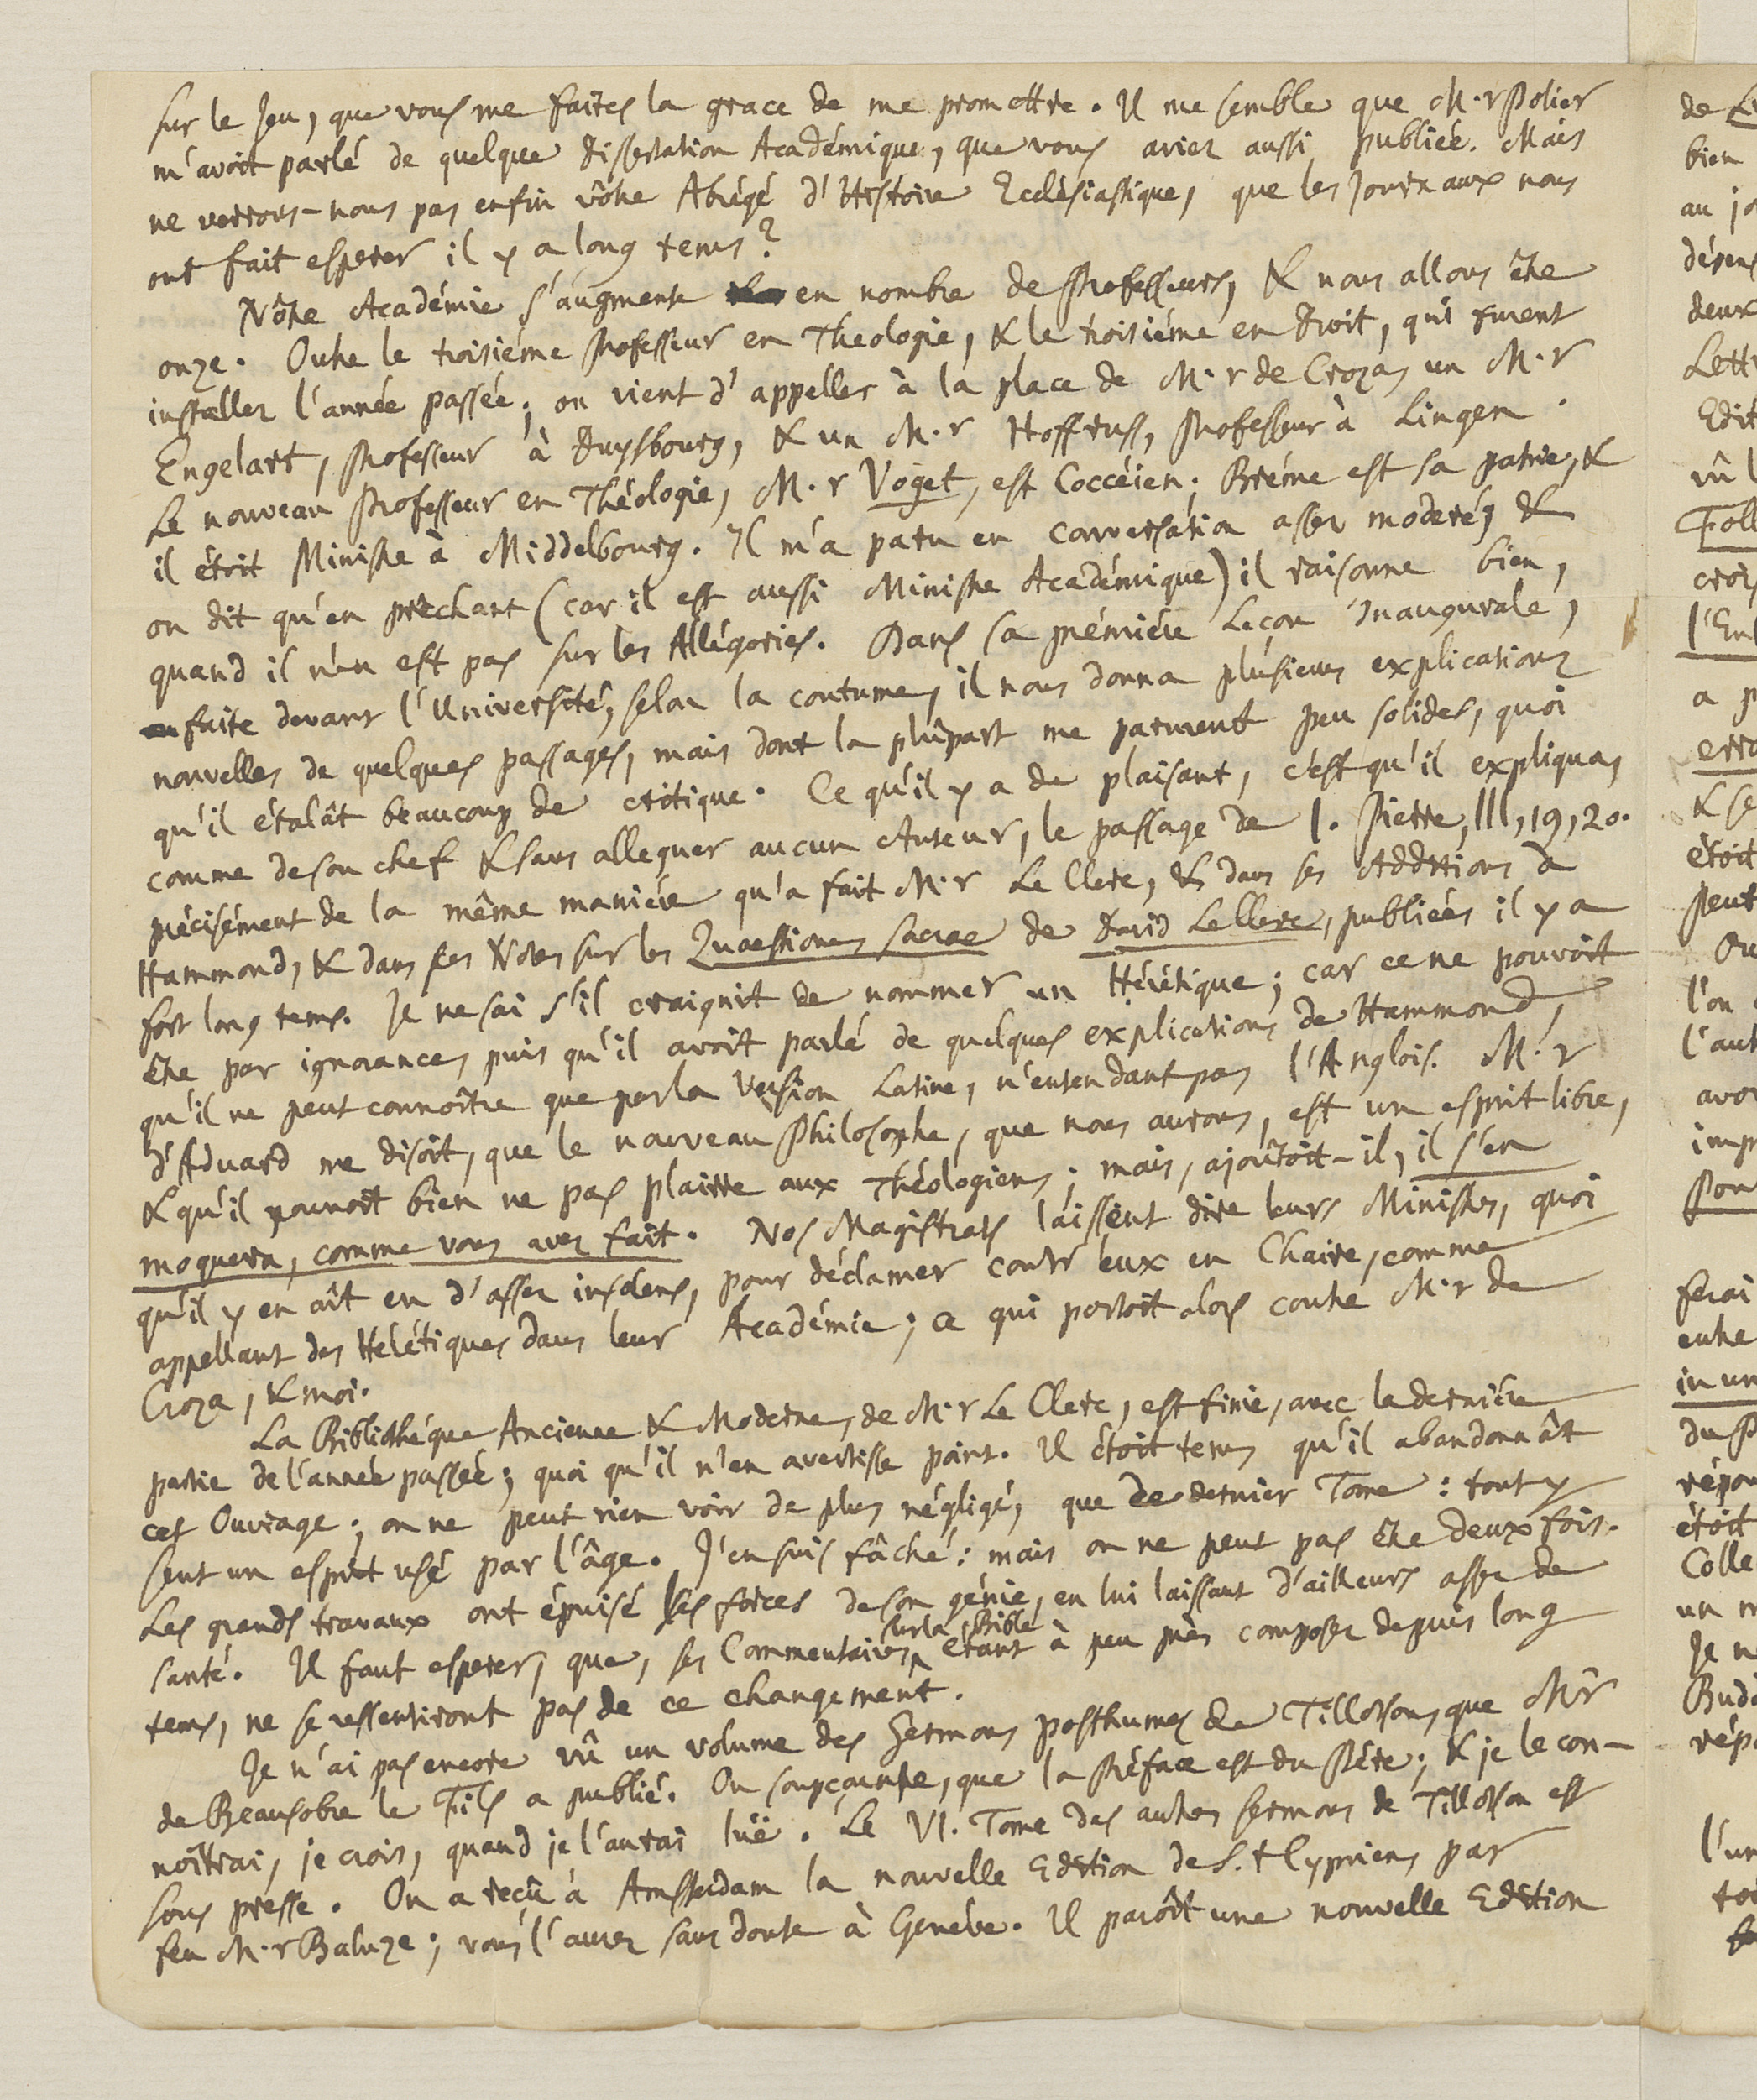 sur le Jeu, que vous me faites la grace de me promettre. Il me semble que M.r Polier
m'avoit parlé de quelque dissertation Académique, que vous aviez aussi publiée. Mais
ne verrons-nous pas enfin vôtre Abrégé d'Histoire Ecclésiastique, que les Journaux nous
ont fait esperer il y a long tems?
Nôtre Académie s'augmente en nombre de Professeurs, & nous allons être
onze. Outre le troisiéme Professeur en Theologie, & le troisiéme en Droit, qui furent
installez l'année passée; on vient d'appeller à la place de M.r de Crozas un M.r
Engelart, Professeur à Duysbourg, & un M.r Hoffrus, Professeur à Lingen.
Le nouveau Professeur en Théologie, M.r Voget, est Coccéien; Bréme est sa patrie, &
il étoit Ministre à Middelbourg. Il m'a paru en conversation assez moderé; &
on dit qu'en prêchant (car il est aussi Ministre Académique) il raisonne bien,
quand il n'en est pas sur les Allégories. Dans sa prémiére Leçon Inaugurale,
faite devant l'Université, selon la coutume, il nous donna plusieurs explications
nouvelles de quelques passages, mais dont la plûpart me parurent peu solides, quoi
qu'il étalât beaucoup de critique. Ce qu'il y a de plaisant, c'est qu'il expliqua,
comme de son chef & sans alleguer aucun Auteur, le passage de I. Pierre, III, 19, 20.
précisément de la même maniére qu'a fait M.r Le Clerc, & dans ses Additions à
Hammond, & dans ses Notes sur les Quaestiones sacrae de David Le Clerc, publiées il y a
fort long tems. Je ne sai s'il craignit de nommer un Hérétique; car ce ne pouvoit
être par ignorance, puis qu'il avoit parlé de quelques explications de Hammond,
qu'il ne peut connoître que par la Version Latine, n'entendant pas l'Anglois. M.r
d'Aduard me disoit, que le nouveau Philosophe, que nous aurons, est un esprit libre,
& qu'il pourroit bien ne pas plairre aux Théologiens; mais, ajoûtoit-il, il s'en
moquera, comme vous avez fait. Nos Magistrats laissent dire leurs Ministres, quoi
qu'il y en aît eu d'assez insolens, pour déclamer contr'eux en Chaire, comme
appellant des Hérétiques dans leur Académie; ce qui portoit alors contre M.r de
Croza, & moi.
La Bibliothéque Ancienne & Moderne, de M.r Le Clerc, est finie, avec la derniére
partie de l'année passée; quoi qu'il n'en avertisse point. Il étoit tems qu'il abandonnât
cet Ouvrage; on ne peut rien voir de plus négligé, que ce dernier Tome: tout y
sent un esprit usé par l'âge. J'en suis fâché: mais on ne peut pas être deux fois.
Les grands travaux ont épuisé les forces de son génie, en lui laissant d'ailleurs assez de
santé. Il faut esperer, que, ses Commentaires sur la Bible étant à peu près composez depuis long
tems, ne se ressentiront pas de ce changement.
Je n'ai pas encore vû un volume des Sermons posthumes de Tillotson, que Mr
de Beausobre le Fils a publié. On soupçonne, que la Préface est du Pére; & je le con-
noîtrai, je crois, quand je l'aurai luë. Le VI. Tome des autres Sermons de Tillotson est
sous presse. On a reçû à Amsterdam la nouvelle Edition de S.t Cyprien, par
feu M.r Baluze; vous l'avez sans doute à Genéve. Il paroît une nouvelle Edition
de
bien
deux
Colle
Je n